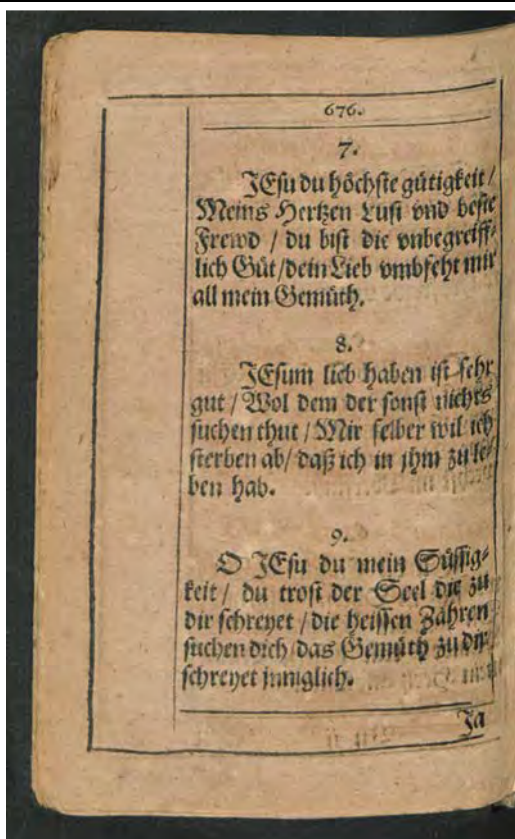 676.
7.
JEsu du höchste gütigkeit /
Meins Hertzen Lust vnd beste
Frewd / du bist die vnbegreiff-
lich Güt / dein Lieb vmbfeht mir
all mein Gemüth.
8.
JEsum lieb haben ist sehr
gut / Wol dem der sonst nichts
suchen thut / Mir selber wil ich
sterben ab / daß ich in jhm zu le-
ben hab.
9.
O JEsu du mein Süssig-
keit / du trost der Seel die zu
dir schreyet / die heissen Zähren
suchen dich / das Gemüth zu dir
schreyet jnniglich.
Ja